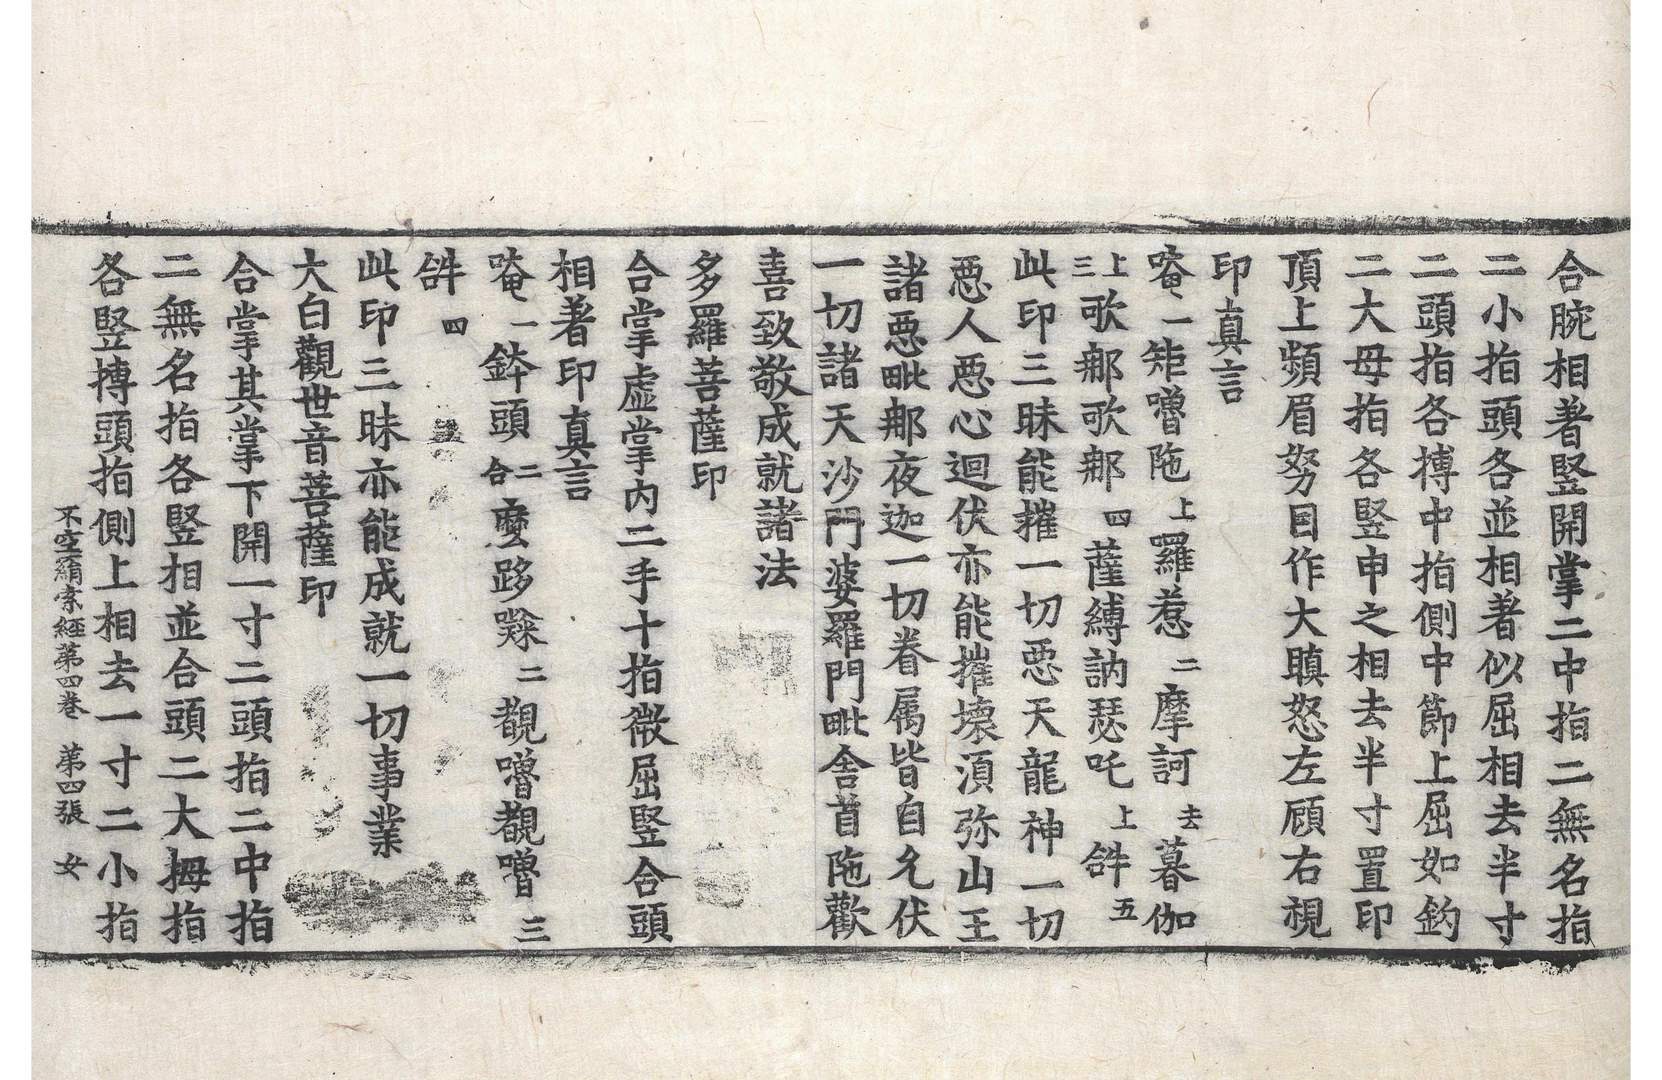 合腕相著竪開掌二中指二無名指
二小指頭各並相著似屈相去半寸
二頭指各搏中指側中節上屈如鈎
二大母指各竪申之相去半寸置印
頂上頻眉努目作大瞋怒左顧右視
印真言
唵一矩嚕陁上羅惹二摩訶去暮伽
三上歌郍歌郍四薩縛訥瑟吒上𤙖五
此印三昧能摧一切惡天龍神一切
惡人惡心迴伏亦能摧壞湏弥山王
諸惡毗郍夜迦一切眷属皆自乞伏
一切諸天沙門婆羅門毗舍首陁歡
喜致敬成就諸法
多羅菩薩印
合掌虚掌内二手十指微屈竪合頭
相著印真言
唵一鉢頭二合麼跢㘑二覩嚕覩嚕三
𤙖四
此印三昧亦能成就一切事業
大白觀世音菩薩印
合掌其掌下開一寸二頭指二中指
二無名指各竪相並合頭二大拇指
各竪搏頭指側上相去一寸二小指
不空羂索經第四卷 第四張 女